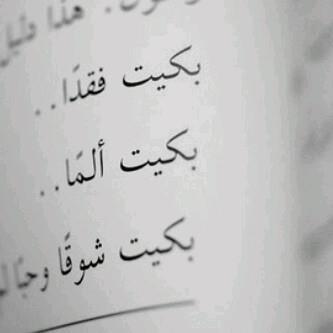 هذا دليل
بكيت فقدًا..
بكيت ألمًا..
بكيت شوقًا وحبًا